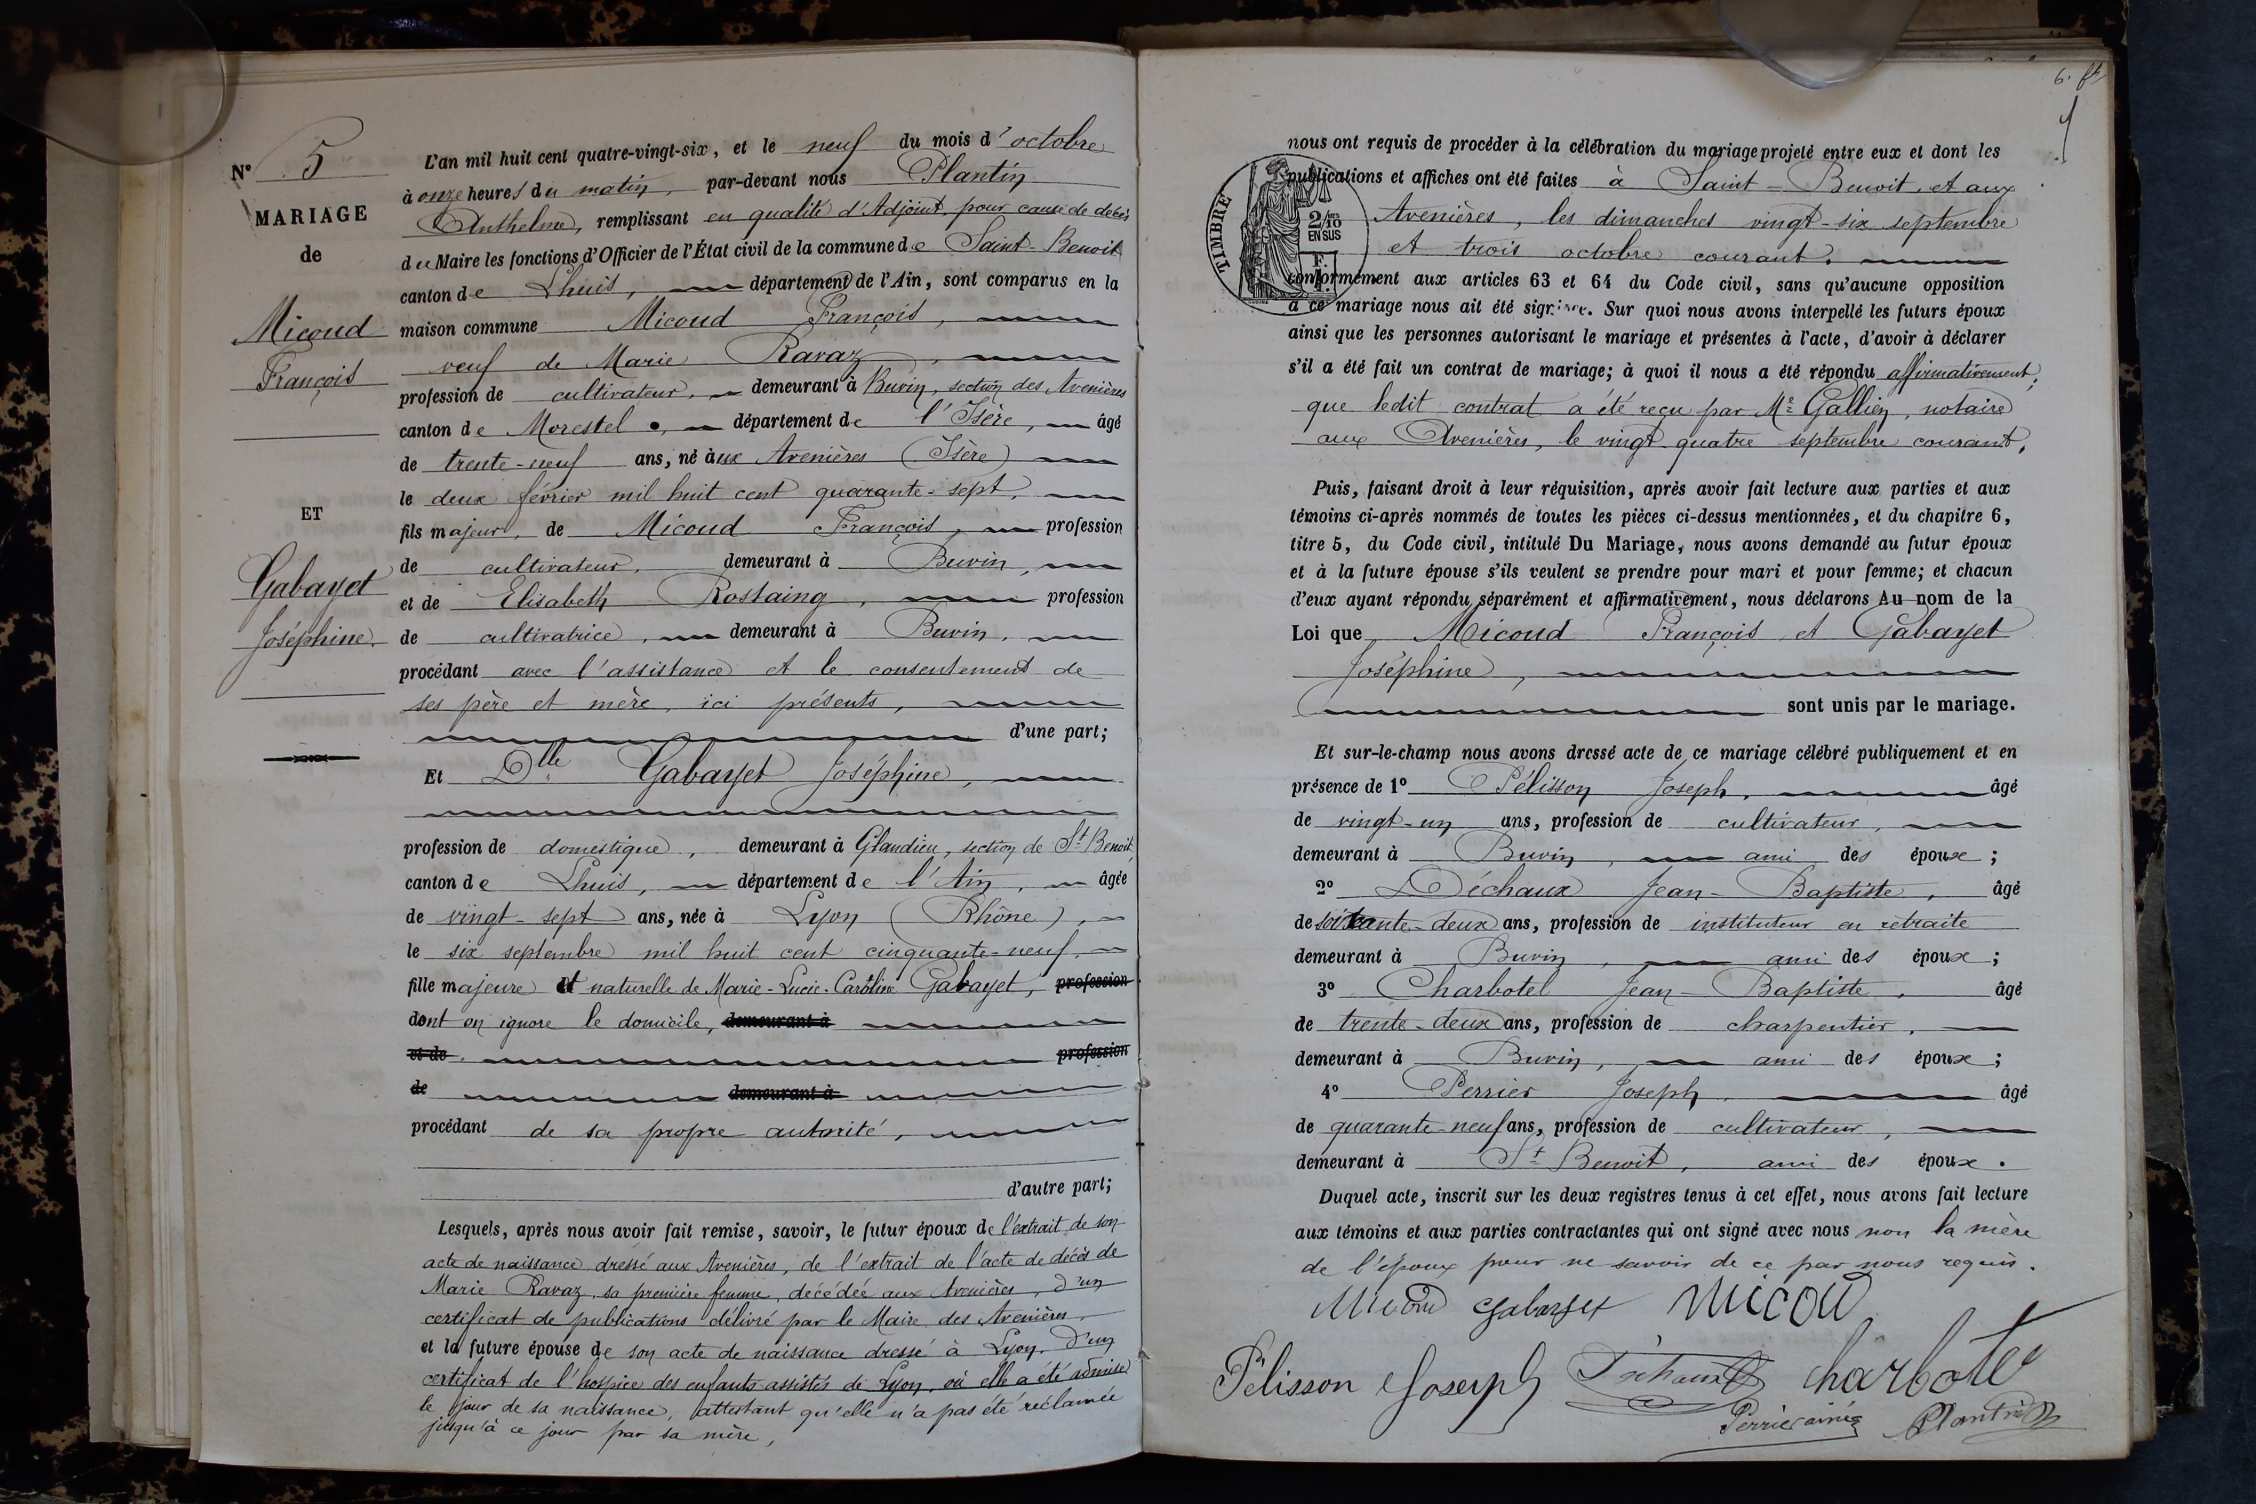 N° 5
MARIAGE
de
Micoud
François
ET
Gabayet
Joséphine
L'an mil huit cent quatre-vingt-six, et le neuf du mois d'octobre
à onze heures du matin, par-devant nous Plantin
Anthelme, remplissant en qualité d'Adjoint, pour cause de décès
du Maire les fonctions d'Officier de l'État civil de la commune de Saint-Benoit
canton de Lhuis, département de l'Ain, sont comparus en la
maison commune Micoud François,
veuf de Marie Ravaz,
profession de cultivateur, demeurant à Buvin, section des Avenières
canton de Morestel, département de l'Isère, âgé
de trente-neuf ans, né aux Avenières (Isère)
le deux février mil huit cent quarante-sept,
fils majeur, de Micoud François, profession
de cultivateur, demeurant à Buvin,
et de Elisabeth Rostaing, profession
de cultivatrice, demeurant à Buvin,
procédant avec l'assistance et le consentement de
ses père et mère, ici présents,
d'une part;
Et Dlle Gabayet Joséphine,
profession de domestique, demeurant à Glandieu, section de St Benoit,
canton de Lhuis, département de l'Ain, âgée
de vingt-sept ans, née à Lyon (Rhône),
le six septembre mil huit cent cinquante-neuf,
fille majeure et naturelle de Marie-Lucie-Caroline Gabayet, profession
dont on ignore le domicile, demeurant à
et de profession
de demeurant à
procédant de sa propre autorité,
d'autre part;
Lesquels, après nous avoir fait remise, savoir, le futur époux de l'extrait de son
acte de naissance dressé aux Avenières, de l'extrait de l'acte de décès de
Marie Ravaz, sa première femme, décédée aux Avenières, d'un
certificat de publications délivré par le Maire des Avenières,
et la future épouse de son acte de naissance dressé à Lyon, d'un
certificat de l'hospice des enfants assistés de Lyon, où elle a été admise
le jour de sa naissance, attestant qu'elle n'a pas été réclamée
jusqu'à ce jour par sa mère,
6. ft
nous ont requis de procéder à la célébration du mariage projeté entre eux et dont les
publications et affiches ont été faites à Saint-Benoit, et aux
TIMBRE
2/10
EN SUS
Avenières, les dimanches vingt-six septembre
et trois octobre courant.
conformément aux articles 63 et 64 du Code civil, sans qu'aucune opposition
à ce mariage nous ait été signifiée. Sur quoi nous avons interpellé les futurs époux
ainsi que les personnes autorisant le mariage et présentes à l'acte, d'avoir à déclarer
s'il a été fait un contrat de mariage; à quoi il nous a été répondu affirmativement;
que ledit contrat a été reçu par Me Gallien, notaire
aux Avenières, le vingt-quatre septembre courant,
Puis, faisant droit à leur réquisition, après avoir fait lecture aux parties et aux
témoins ci-après nommés de toutes les pièces ci-dessus mentionnées, et du chapitre 6,
titre 5, du Code civil, intitulé Du Mariage, nous avons demandé au futur époux
et à la future épouse s'ils veulent se prendre pour mari et pour femme; et chacun
d'eux ayant répondu séparément et affirmativement, nous déclarons Au nom de la
Loi que Micoud François et Gabayet
Joséphine,
sont unis par le mariage.
Et sur-le-champ nous avons dressé acte de ce mariage célébré publiquement et en
présence de 1° Pélisson Joseph, âgé
de vingt-un ans, profession de cultivateur,
demeurant à Buvin, ami des époux;
2° Déchaux Jean-Baptiste, âgé
de soixante-deux ans, profession de instituteur en retraite
demeurant à Buvin, ami des époux;
3° Charbotel Jean-Baptiste, âgé
de trente-deux ans, profession de charpentier,
demeurant à Buvin, ami des époux;
4° Perrier Joseph, âgé
de quarante-neuf ans, profession de cultivateur,
demeurant à St Benoit, ami des époux.
Duquel acte, inscrit sur les deux registres tenus à cet effet, nous avons fait lecture
aux témoins et aux parties contractantes qui ont signé avec nous non la mère
de l'époux pour ne savoir de ce par nous requis.
Micoud Gabayet Micou
Pélisson Joseph Déchaux Charbotel
Perrier ainé Plantin